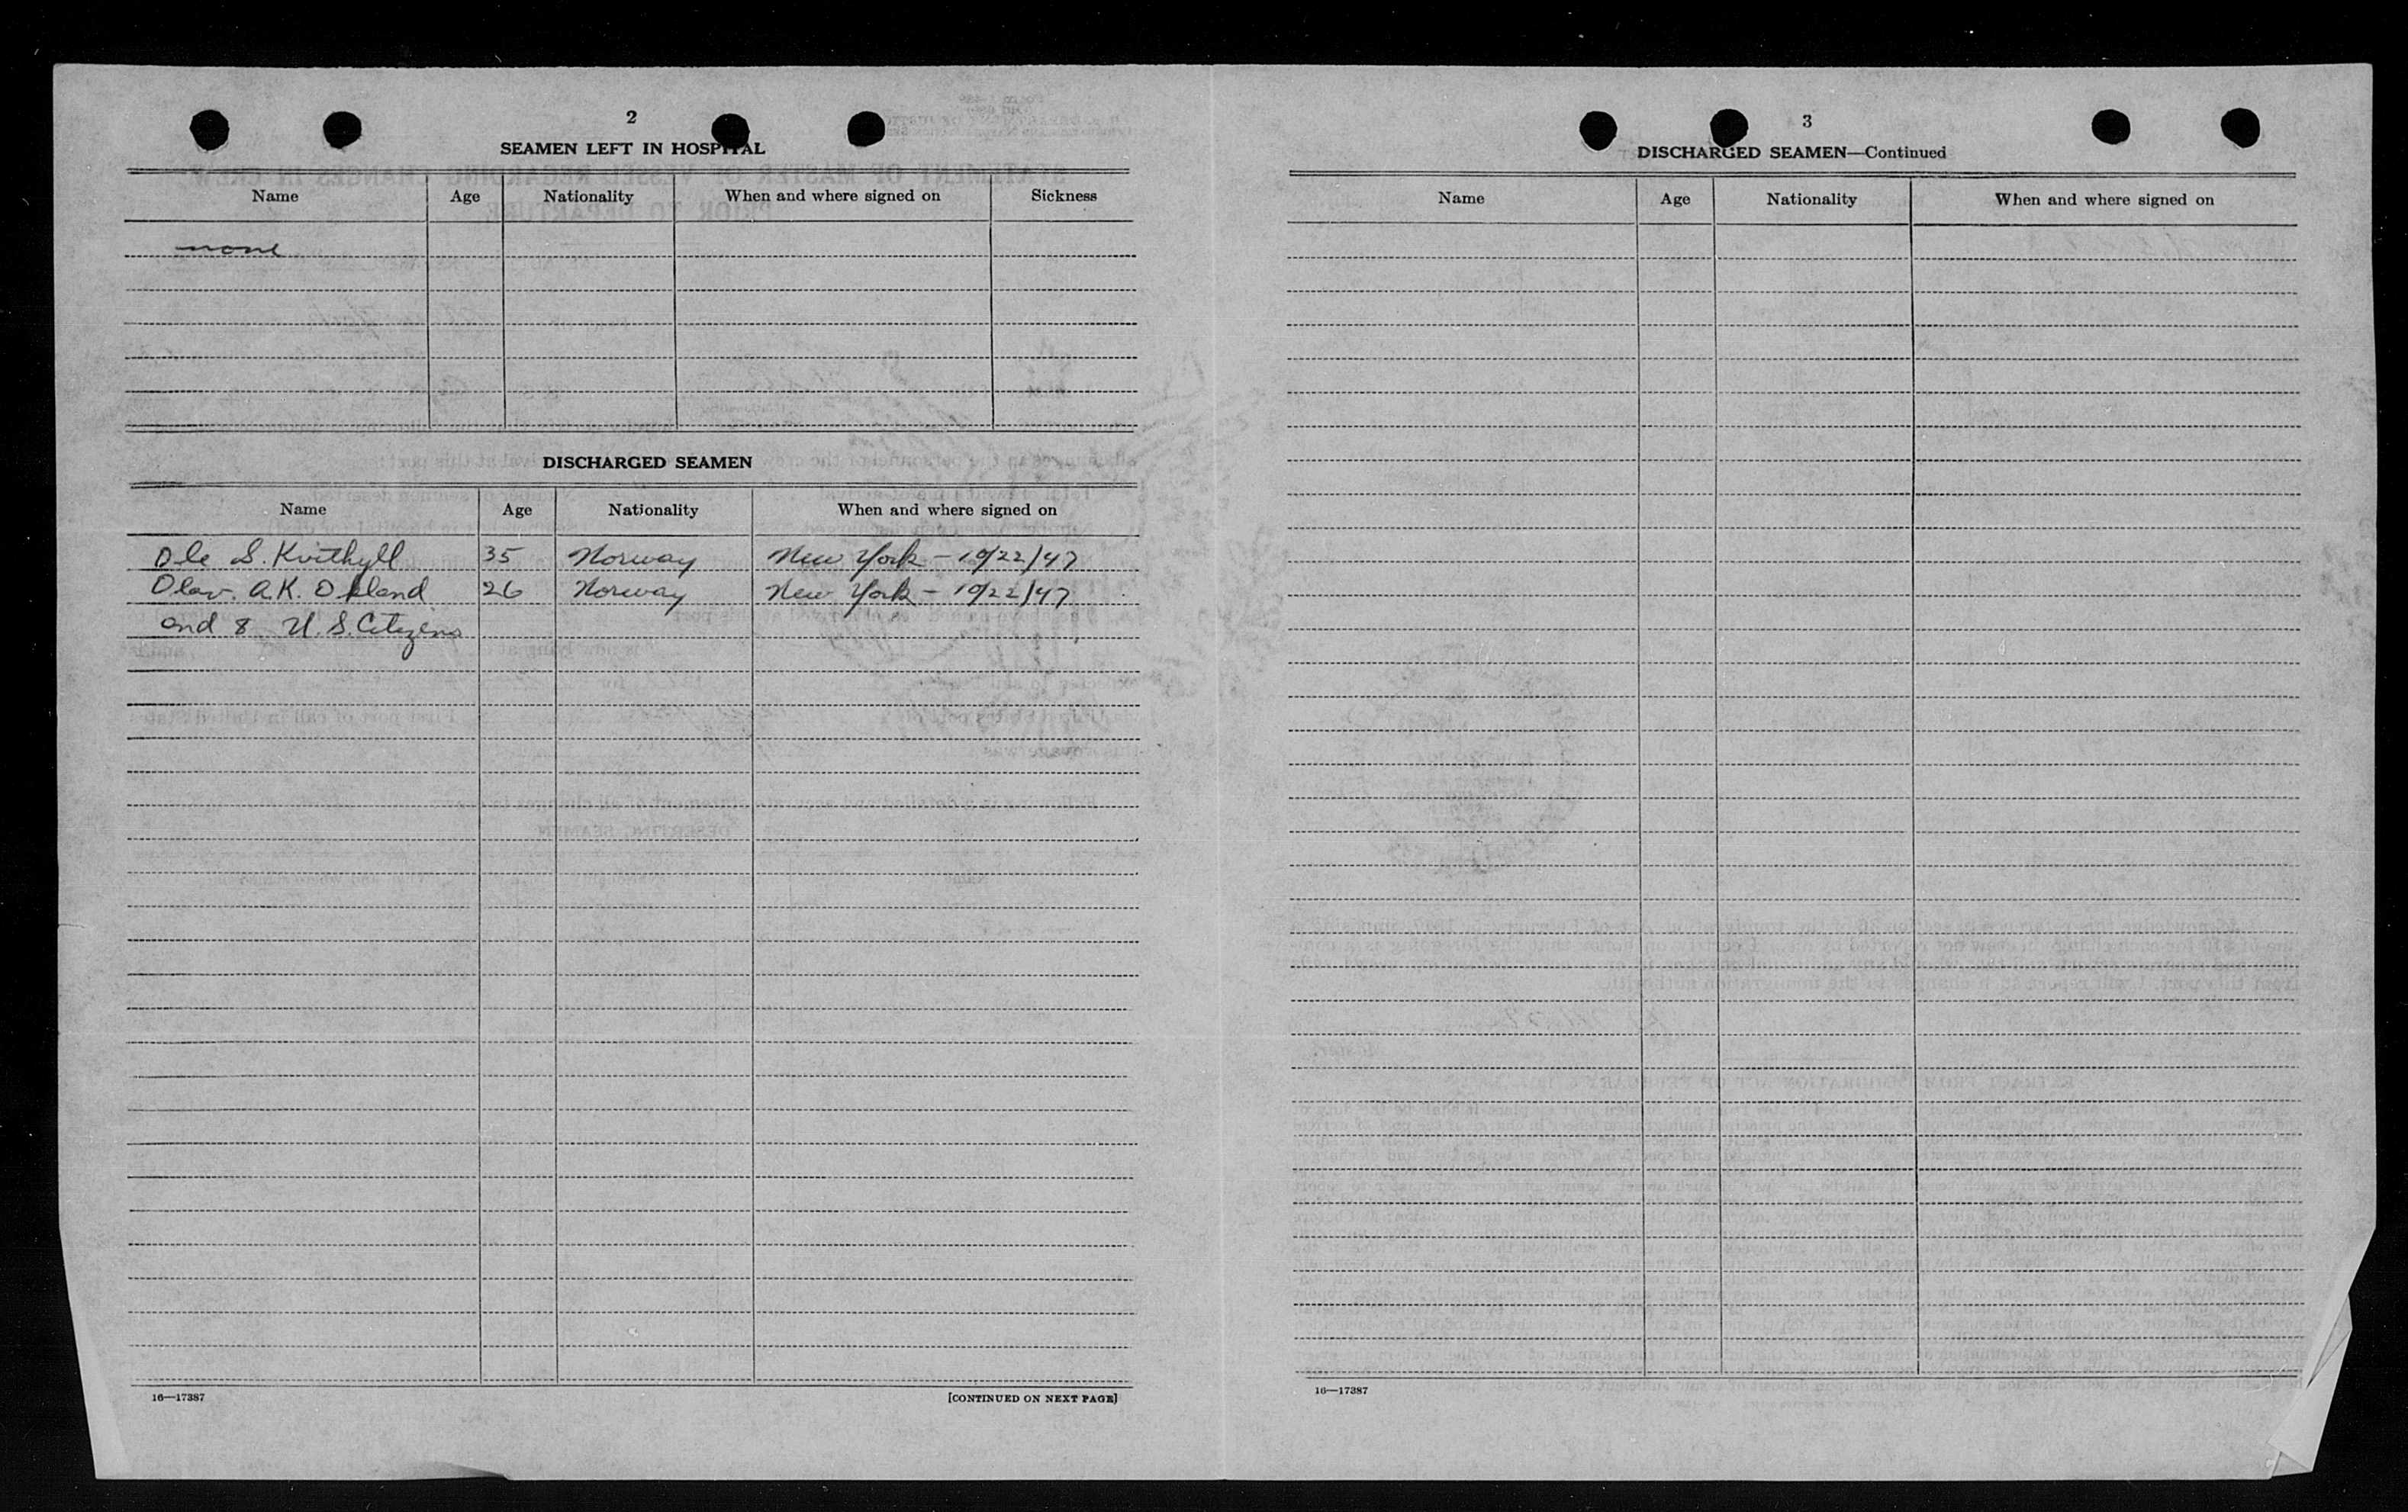 2
SEAMEN LEFT IN HOSPITAL
Name Age Nationality When and where signed on Sickness
none
DISCHARGED SEAMEN
Name Age Nationality When and where signed on
Ole S. Kvithyll 35 Norway New York - 10/22/47
Olav. A.K. Okland 26 Norway New York - 10/22/47
and 8 U.S. Citizens
16—17387 [CONTINUED ON NEXT PAGE]
3
DISCHARGED SEAMEN—Continued
Name Age Nationality When and where signed on
16—17387